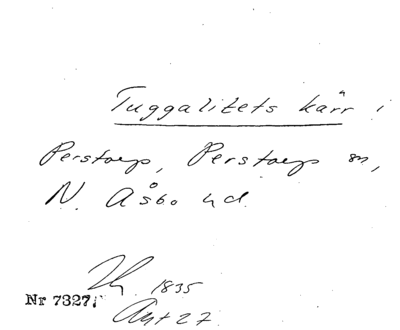 Tuggalitets kärr i
Perstorp, Perstorps sn,
N. Åsbo hd.
1835
Nr 7327.
27.